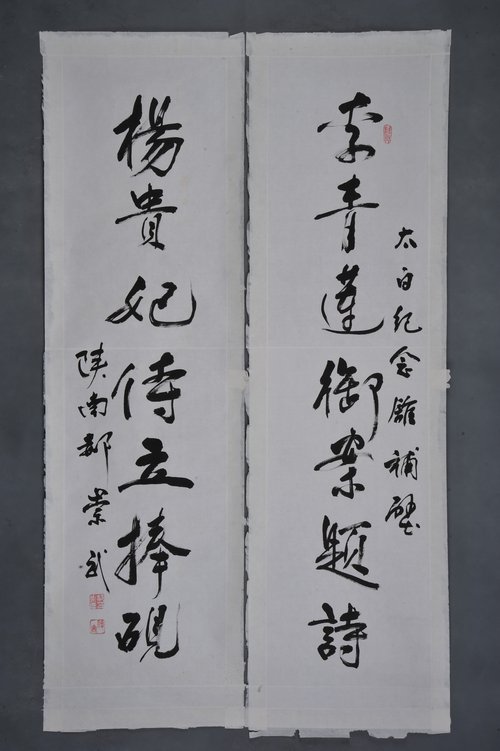 太白纪念馆補壁
李青蓮御案題詩
楊貴妃侍立捧硯
陕南郝崇武